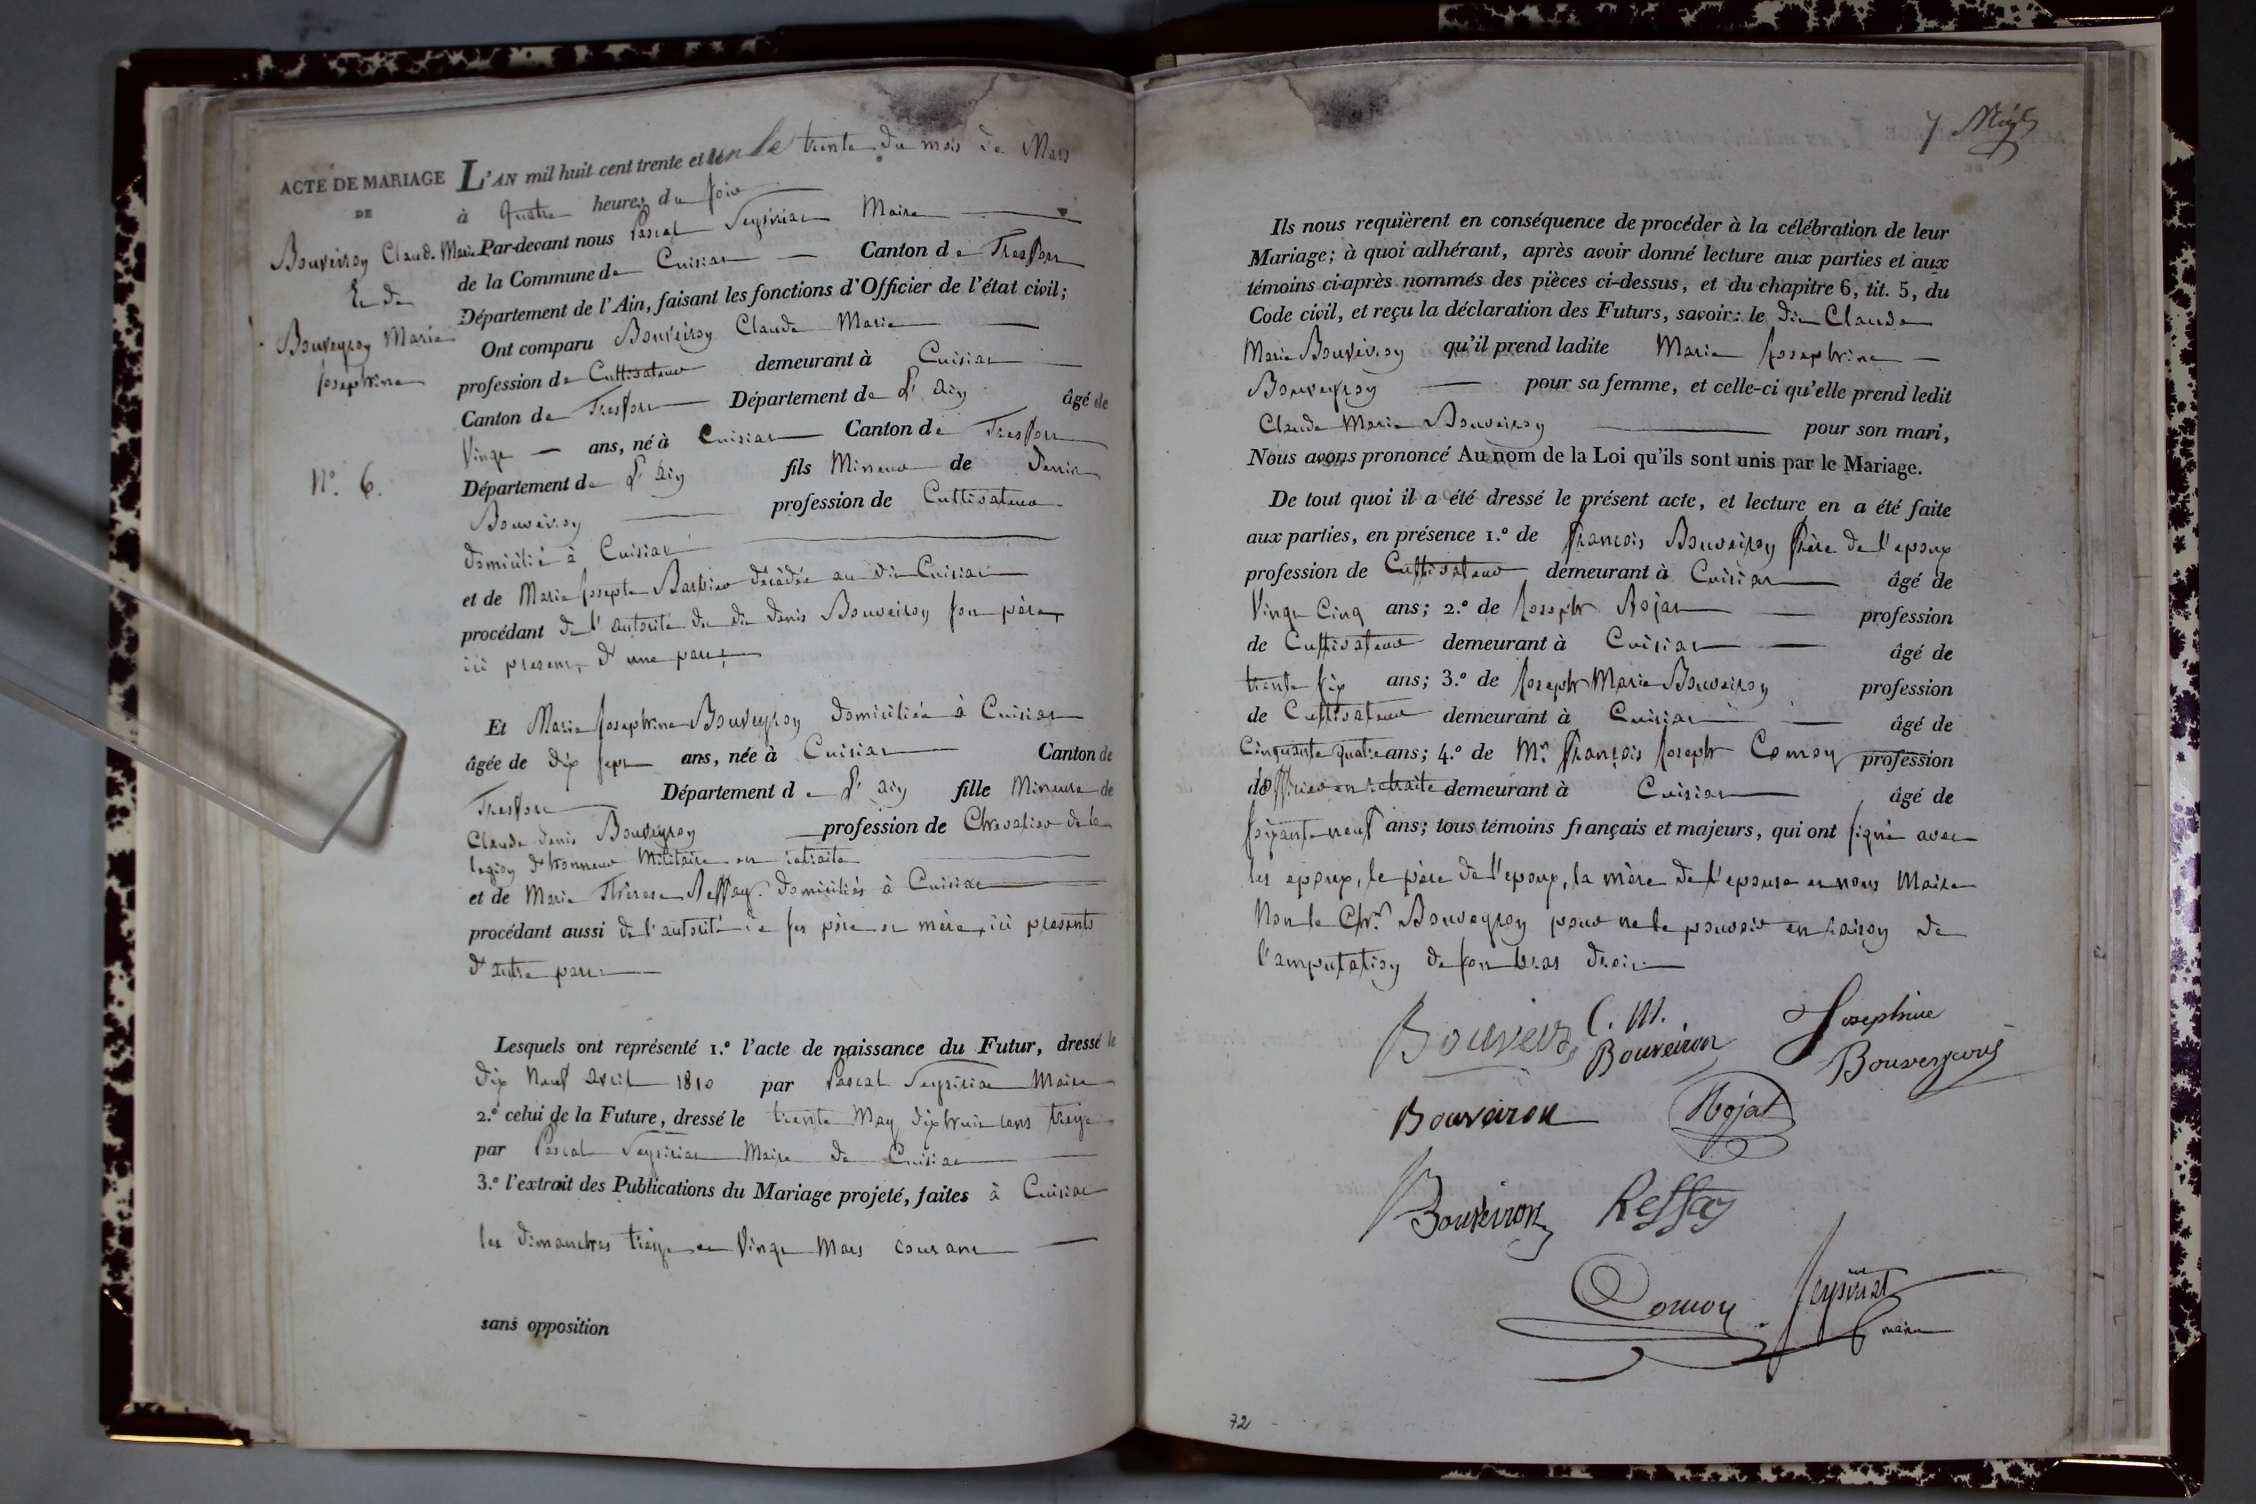 ACTE DE MARIAGE
DE
Bouveiroy Claude Marie
Et de
Bouveyroy Marie
Josephine
N.° 6.
L'AN mil huit cent trente et un le trente du mois de Mars
à Quatre heures du soir
Par-devant nous Pascal Seysiriat Maire
de la Commune de Cuisiat Canton de Treffort
Département de l'Ain, faisant les fonctions d'Officier de l'état civil;
Ont comparu Bouveiroy Claude Marie
profession de Cultivateur demeurant à Cuisiat
Canton de Treffort Département de l'Ain âgé de
Vingt ans, né à Cuisiat Canton de Treffort
Département de l'Ain fils Mineur de Denis
Bouveiroy profession de Cultivateur
domicilié à Cuisiat
et de Marie Josepte Barbier décédée au dit Cuisiat
procédant de l'autorité du dit Denis Bouveiroy son père,
ici présent, d'une part,
Et Marie Josephine Bouveyroy domiciliée à Cuisiat
âgée de dix sept ans, née à Cuisiat Canton de
Treffort Département de l'Ain fille Mineure de
Claude Denis Bouveyroy profession de Chevalier de la
legion d'honneur Militaire en retraite
et de Marie Thérese Reffay domiciliés à Cuisiat
procédant aussi de l'autorité de ses père et mère, ici présents
d'autre part
Lesquels ont représenté 1.° l'acte de naissance du Futur, dressé le
dix Neuf avril 1810 par Pascal Seysiriat Maire
2.° celui de la Future, dressé le trente May dixhuit cens treize
par Pascal Seysiriat Maire de Cuisiat
3.° l'extrait des Publications du Mariage projeté, faites à Cuisiat
les dimanches treize et Vingt Mars courant
sans opposition
7
Ils nous requièrent en conséquence de procéder à la célébration de leur
Mariage; à quoi adhérant, après avoir donné lecture aux parties et aux
témoins ci-après nommés des pièces ci-dessus, et du chapitre 6, tit. 5, du
Code civil, et reçu la déclaration des Futurs, savoir: le dit Claude
Marie Bouveiroy qu'il prend ladite Marie Josephine
Bouveyroy pour sa femme, et celle-ci qu'elle prend ledit
Claude Marie Bouveiroy pour son mari,
Nous avons prononcé Au nom de la Loi qu'ils sont unis par le Mariage.
De tout quoi il a été dressé le présent acte, et lecture en a été faite
aux parties, en présence 1.° de François Bouveiroy frère de l'epoux
profession de Cultivateur demeurant à Cuisiat âgé de
Vingt Cinq ans; 2.° de Joseph Rojat profession
de Cultivateur demeurant à Cuisiat âgé de
trente six ans; 3.° de Joseph Marie Bouveiroy profession
de Cultivateur demeurant à Cuisiat âgé de
Cinquante quatre ans; 4.° de Mr. François Joseph Comoy profession
d'officier en retraite demeurant à Cuisiat âgé de
soixante neuf ans; tous témoins français et majeurs, qui ont signé avec
les epoux, le père de l'epoux, la mère de l'epouse et nous Maire
Non le Chr. Bouveyroy pour ne le pouvoir en raison de
l'amputation de son bras droit
C. M.
Bouveiron
Josephine
Bouveyron
Bouveiron
Rojat
Bouveiron
Reffay
Comoy
Seysiriat
maire
72